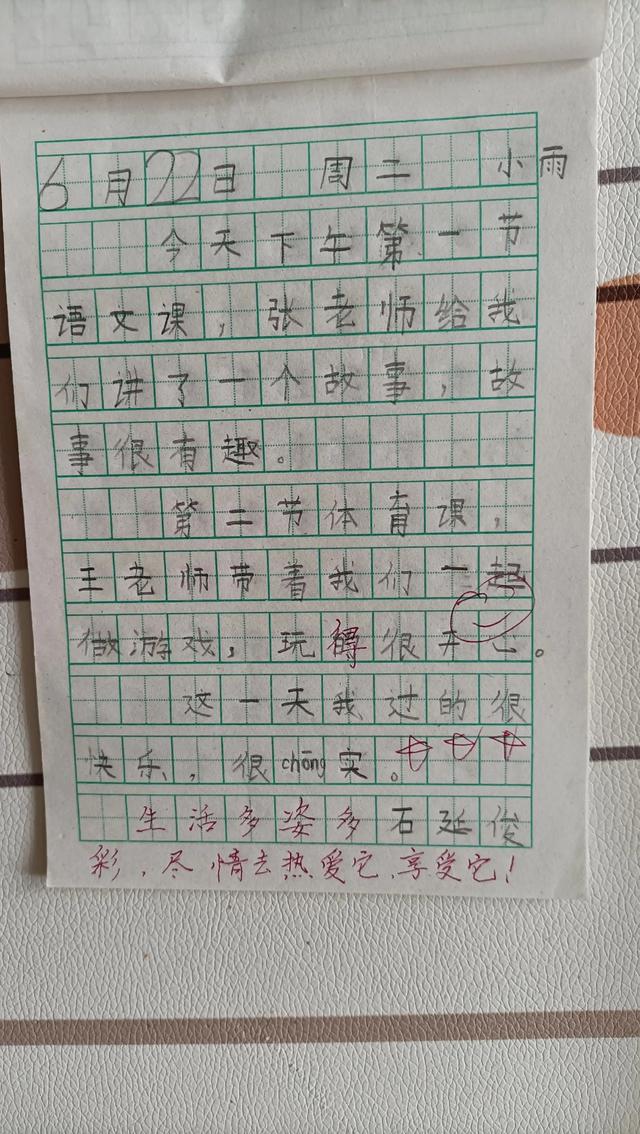 6月22日 周二 小雨
今天下午第一节
语文课，张老师给我
们讲了一个故事，故
事很有趣。
第二节体育课，
王老师带着我们一起
做游戏，玩得很开心。
这一天我过的很
快乐，很chōng实。
生活多姿多 石延俊
彩，尽情去热爱它，享受它！